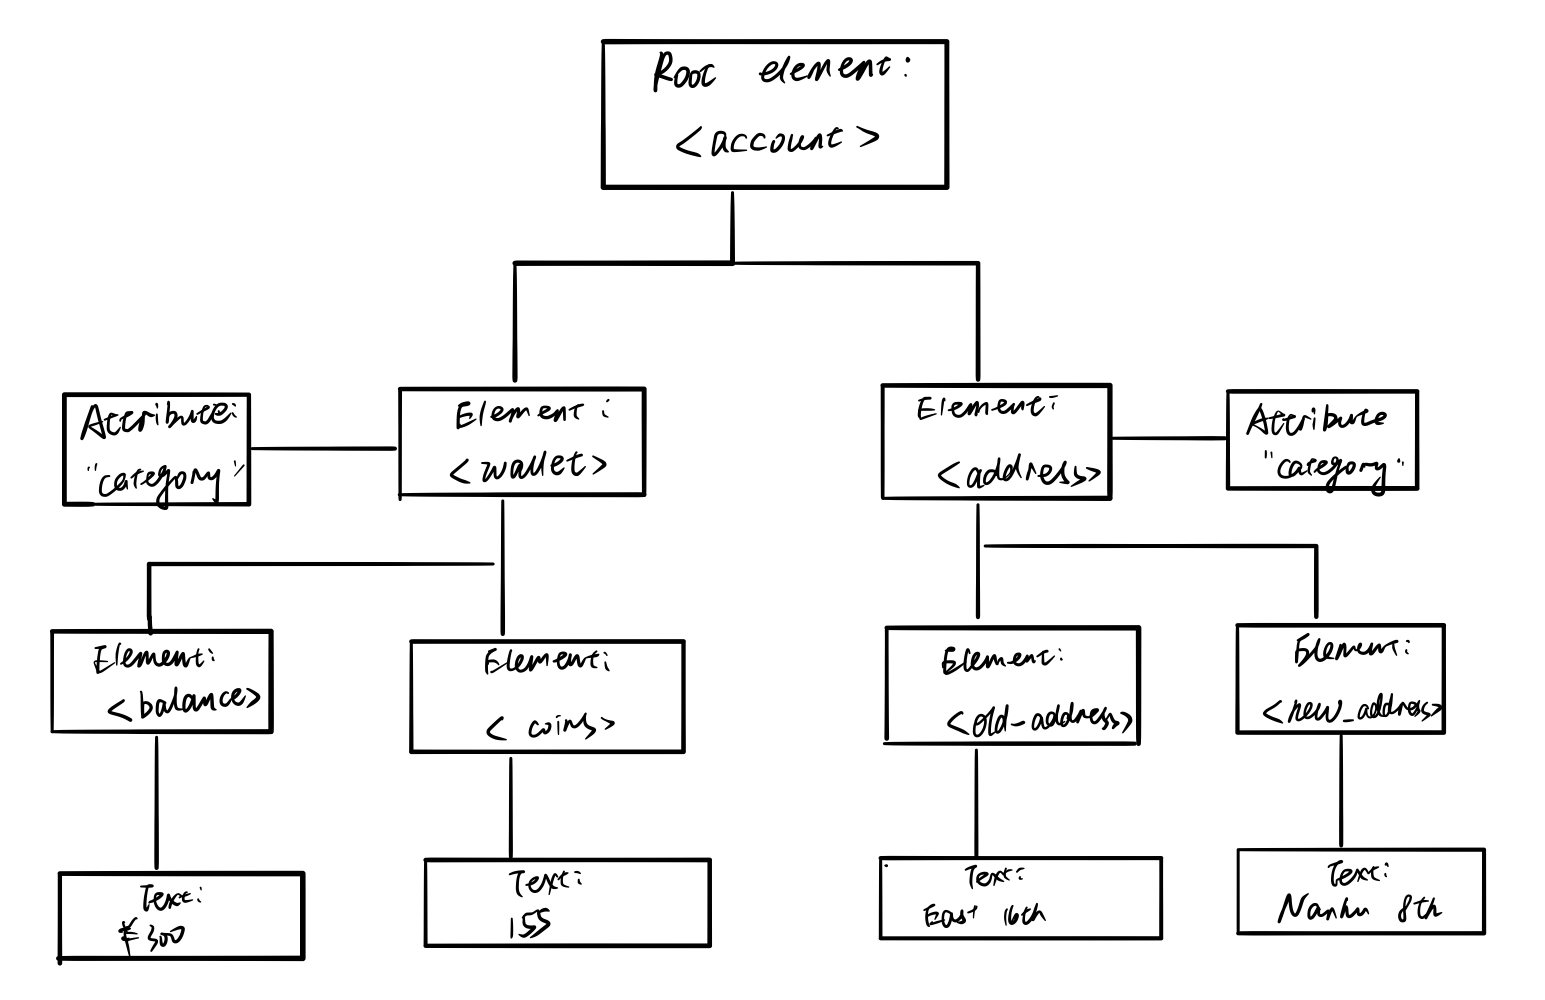 Root element:
<account>
Attribute:
"category"
Element:
<wallet>
Element:
<address>
Attribute
"category"
Element:
<balance>
Element:
<coins>
Element:
<old-address>
Element:
<new_address>
Text:
¥300
Text:
155
Text:
East 16th
Text:
Nanhu 8th